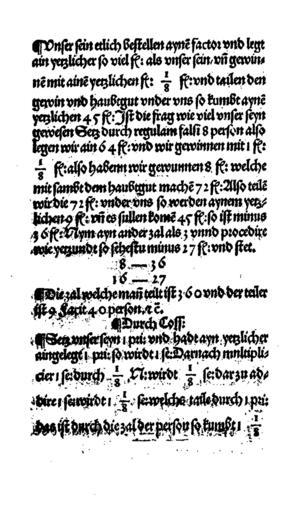 ¶Unser sein etlich bestellen aynē factor vnd legt
ain yetzlicher so viel fl: als vnser sein/ vñ gewin-
nē mit ainē yetzlichen fl: 1/8 fl: vnd tailen den
gewin vnd haubtgut vnder vns so kumbt aynē
yetzlichen 45 fl: Ist die frag wie viel vnser seyn
gewesen Setz durch regulam falsi 8 person also
legen wir ain 64 fl: vnd wir gewinnen mit 1 fl:
1/8 fl: also habenn wir gewunnen 8 fl: welche
mit sambt dem haubtgut machē 72 fl: Also teilē
wir die 72 fl: vnder vns so werden aynem yetz-
lichen 9 fl: vñ es sullen komē 45 fl: so ist minus
36 fl: Nym ayn ander zal als 3 vnnd procedire
wie yetzundt so sehestu minus 27 fl: vnd stet.
8 — 36
16 — 27
¶Die zal welche man teilt ist 360 vnd der teiler
ist 9 Facit 40 person/ ꝛc̄.
¶Durch Coss:
¶Setz vnser seyn 1 pri: vnd hadt ayn yetzlicher
aingelegt 1 pri: so wirdt 1 se: Darnach multipli-
cier 1 se: durch 1/8 N: wirdt 1/8 se: dar zu ad-
dire 1 se: wirdt 1 1/8 se: welchs taile durch 1 pri:
das ist durch die zal der person so kumbt 1 1/8